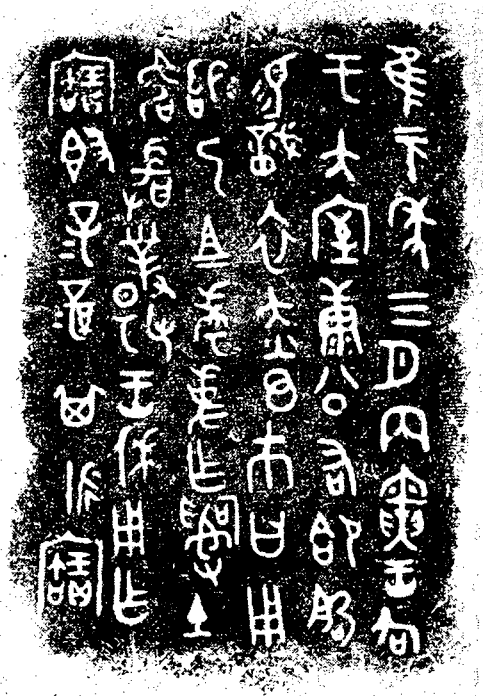 隹元年三月丙寅王各
于大室康公右郃曶
易戠衣赤市曰用
嗣乃且考事乍𤔲土
曶敢對揚王休用乍
寶𣪘子孫其永寶